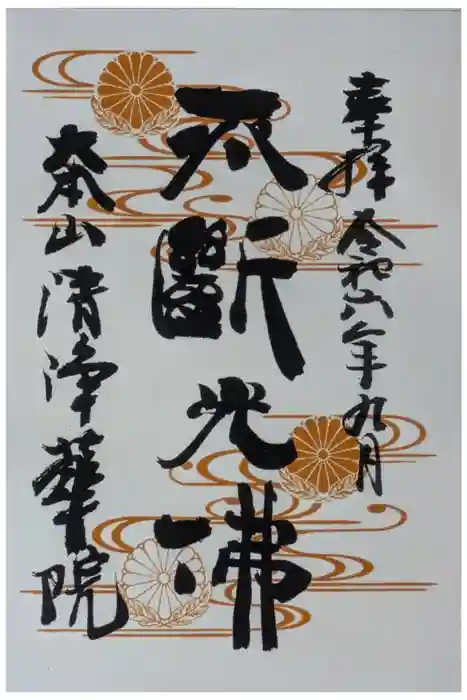 奉拝 令和六年九月
不断光佛
大本山 清浄華院